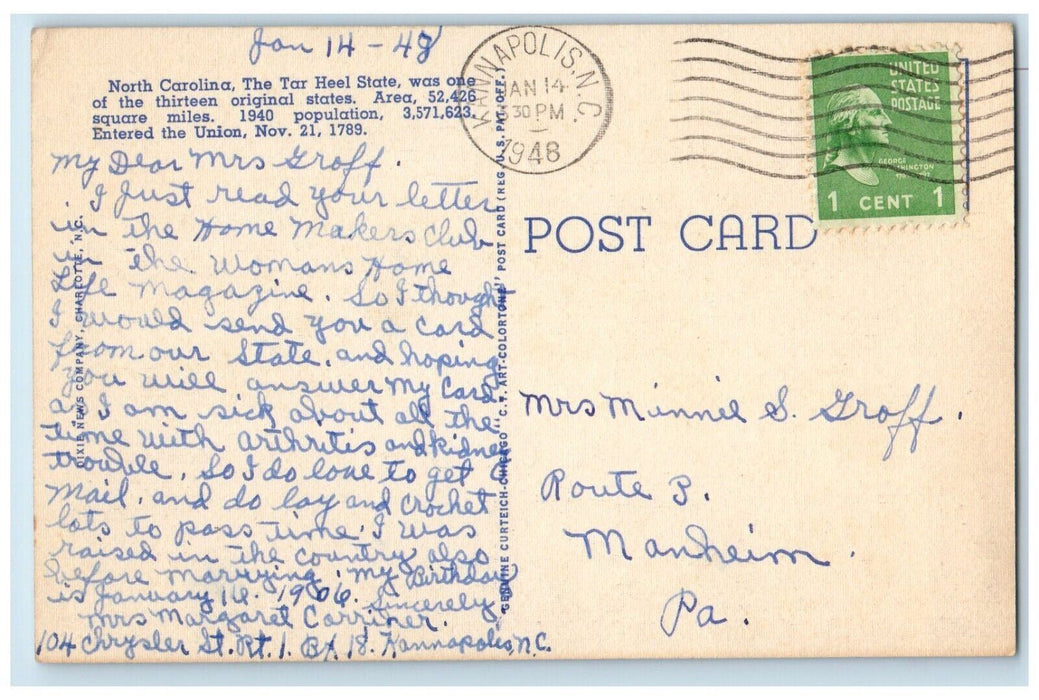 Jan 14 - 48
North Carolina, The Tar Heel State, was one
of the thirteen original states. Area, 52,426
square miles. 1940 population, 3,571,623.
Entered the Union, Nov. 21, 1789.
My Dear Mrs Groff.
I Just read your letter
in the Home Makers Club
in the Womans Home
Life Magazine. So I thought
I would send you a card
from our State, and hoping
you will answer My Card
as I am sick about all the
time with arthritis and kidney
trouble, So I do love to get
Mail, and do lay and Crochet
lots to pass time. I was
raised in the country also
before marrying. My Birthday
is January 16. 1906. Sincerely
Mrs Margaret
104 Chrysler St. Rt. 1. Bx 18. Kannapolis, N.C.
DIXIE NEWS COMPANY, CHARLOTTE, N.C.
GENUINE CURTEICH-CHICAGO "C.T. ART-COLORTONE" POST CARD (REG. U.S. PAT. OFF.)
KANNAPOLIS, N.C.
JAN 14
30 PM
1948
UNITED
STATES
POSTAGE
GEORGE
WASHINGTON
1 CENT 1
POST CARD
Mrs Minnie S. Groff.
Route 3.
Manheim.
Pa.